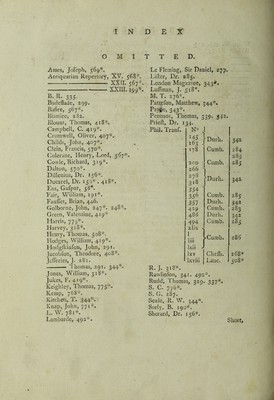 INDEX
OMITTED.
Ames, Joseph, 569*.
Antiquarian Repertory, XV. 568*.
XXII. 567*.
XXIII. 299*.
B. R. 335.
Badeslade, 299.
Basire, 367*.
Blamire, 282.
Blount, Thomas, 418*.
Campbell, C. 419*.
Cromwell, Oliver, 407*.
Childs, John, 407*.
Clein, Francis, 570*.
Coleraine, Henry, Lord, 567*.
Cowle, Richard, 319*.
Dalton, 570*.
Dillenius, Dr. 156*.
Ducarel, Dr. 150*, 418*.
Ent, Gaspar, 58*.
Fair, William, 191*.
Faussett, Brian, 406.
Golborne, John, 247*. 248*.
Green, Valentine, 419*
Harris, 775*.
Harvey, 318*.
Henry, Thomas, 508*.
Hodges, William, 419*.
Hodgskinson, John, 291.
Jacobsen, Theodore, 408*.
Jefferies, J. 282.
Thomas, 291. 344*.
Jones, William, 318*.
Jukes, F. 419*.
Keighley, Thomas, 775*.
Kemp, 768*.
Kitchen, T. 344*.
Knap, John, 771*.
L. W. 781*.
Lambarde, 492*.
Le Fleming, Sir Daniel, 279.
Lister, Dr. 285.
London Magazine, 343*.
Luffman, J. 518*.
M. T. 276*.
Pattefon, Matthew, 344*.
343*.
Pennant, Thomas, 339. 541.
Priest, Dr. 134.
Phil. Trans. No
145
163 Durh. 342
178 Comb. 284
285
200 Comb. 285
266
278
318 Durh. 342
334
356 Comb. 285
357 Durh. 342
429 Comb. 285
486 Durh. 342
494 Comb. 285
xlix
l
lii Comb. 286
liii
lv
lxv Chesh. 268*
lxviii Linc. 508*
R. J. 318*.
Rawlinson, 341. 492*.
Rudd, Thomas, 329. 337*.
S. C. 776*.
S. G. 287.
Seale, R. W. 344*.
Seely, B. 190*.
Sherard, Dr. 156*.